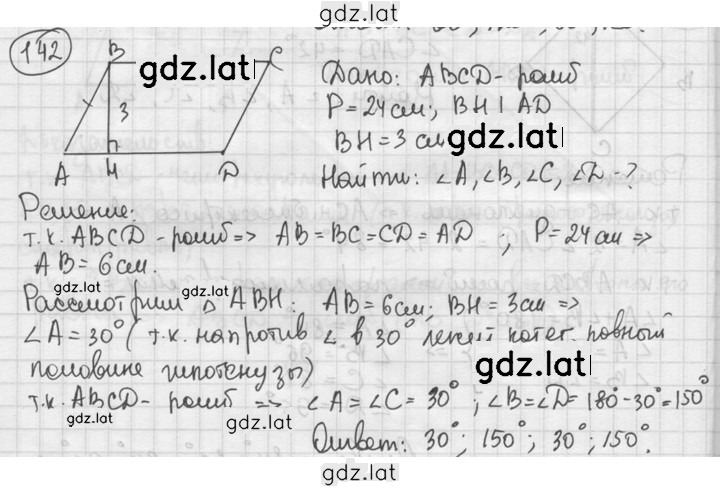 gdz.lat
142
B
C
gdz.lat
3
A
H
D
Дано: ABCD - ромб
P = 24 см; BH ⊥ AD
BH = 3 см
gdz.lat
Найти: ∠A, ∠B, ∠C, ∠D - ?
Решение:
т.к. ABCD - ромб => AB = BC = CD = AD ; P = 24 см =>
AB = 6 см.
gdz.lat
Рассмотрим △ ABH: AB = 6 см; BH = 3 см =>
∠A = 30° (т.к. напротив ∠ в 30° лежит катет, равный
половине гипотенузы)
gdz.lat
т.к. ABCD - ромб => ∠A = ∠C = 30° ; ∠B = ∠D = 180° - 30° = 150°
gdz.lat
Ответ: 30°; 150°; 30°; 150°.
gdz.lat